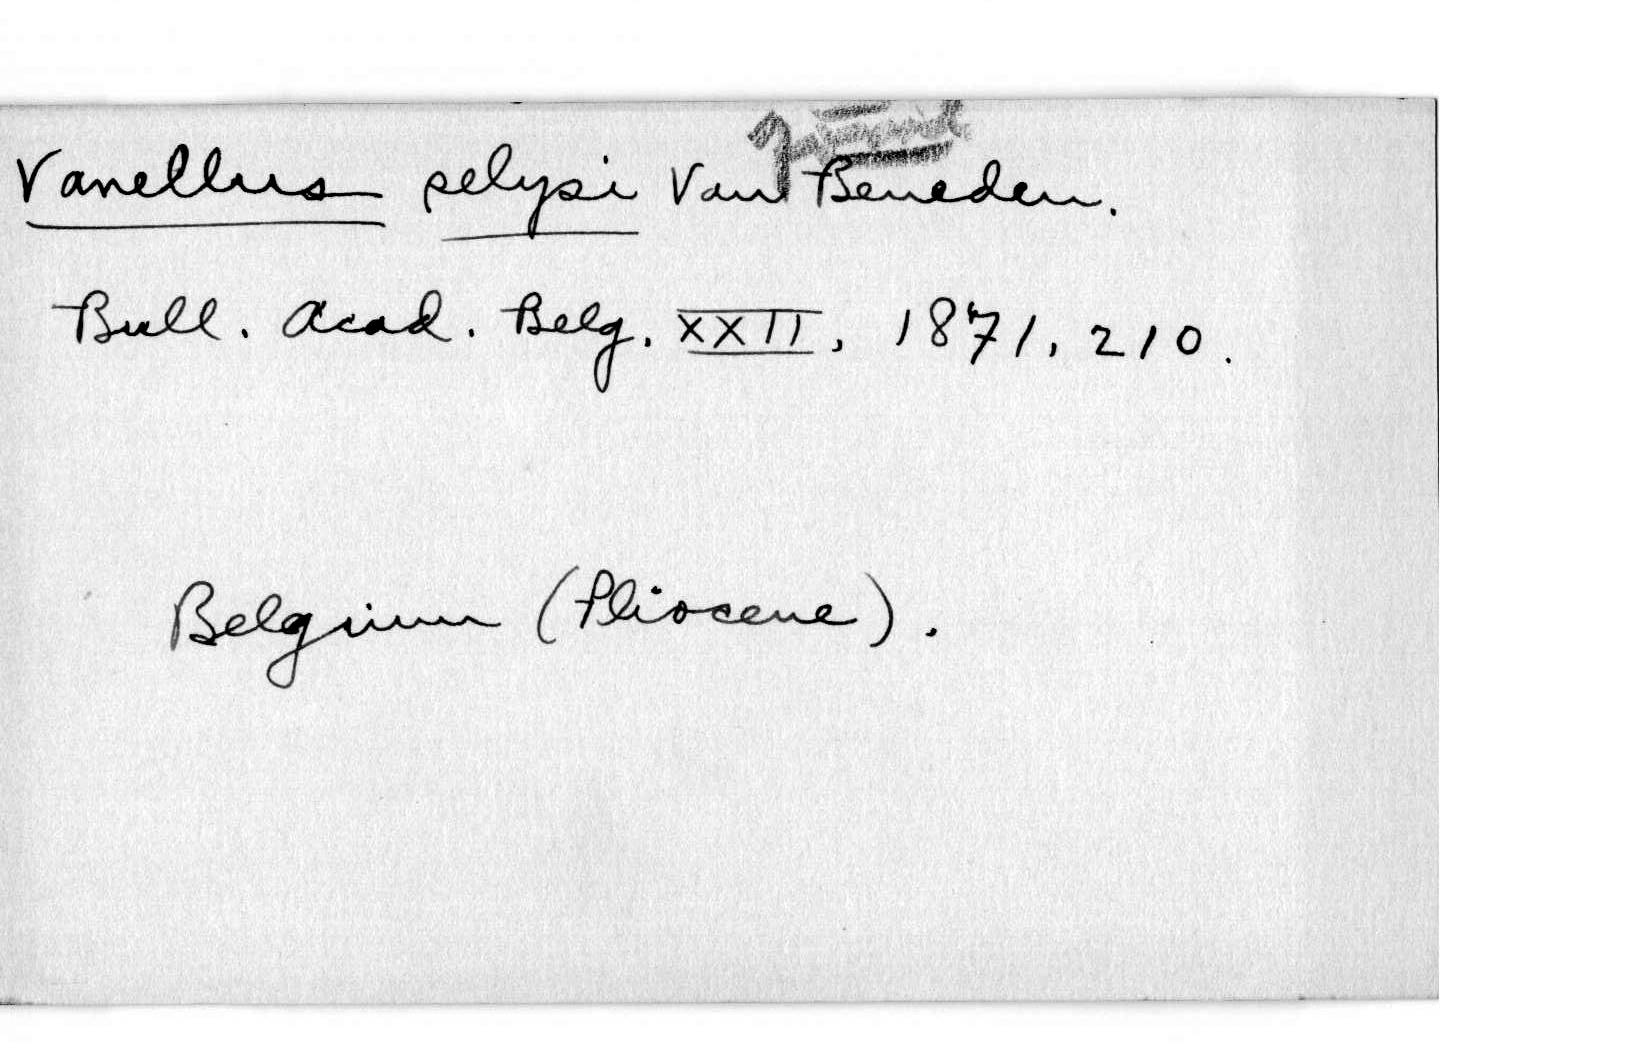 Vanellus selysi Van Beneden.
Bull. Acad. Belg. XXII, 1871, 210.
Belgium (Pliocene).